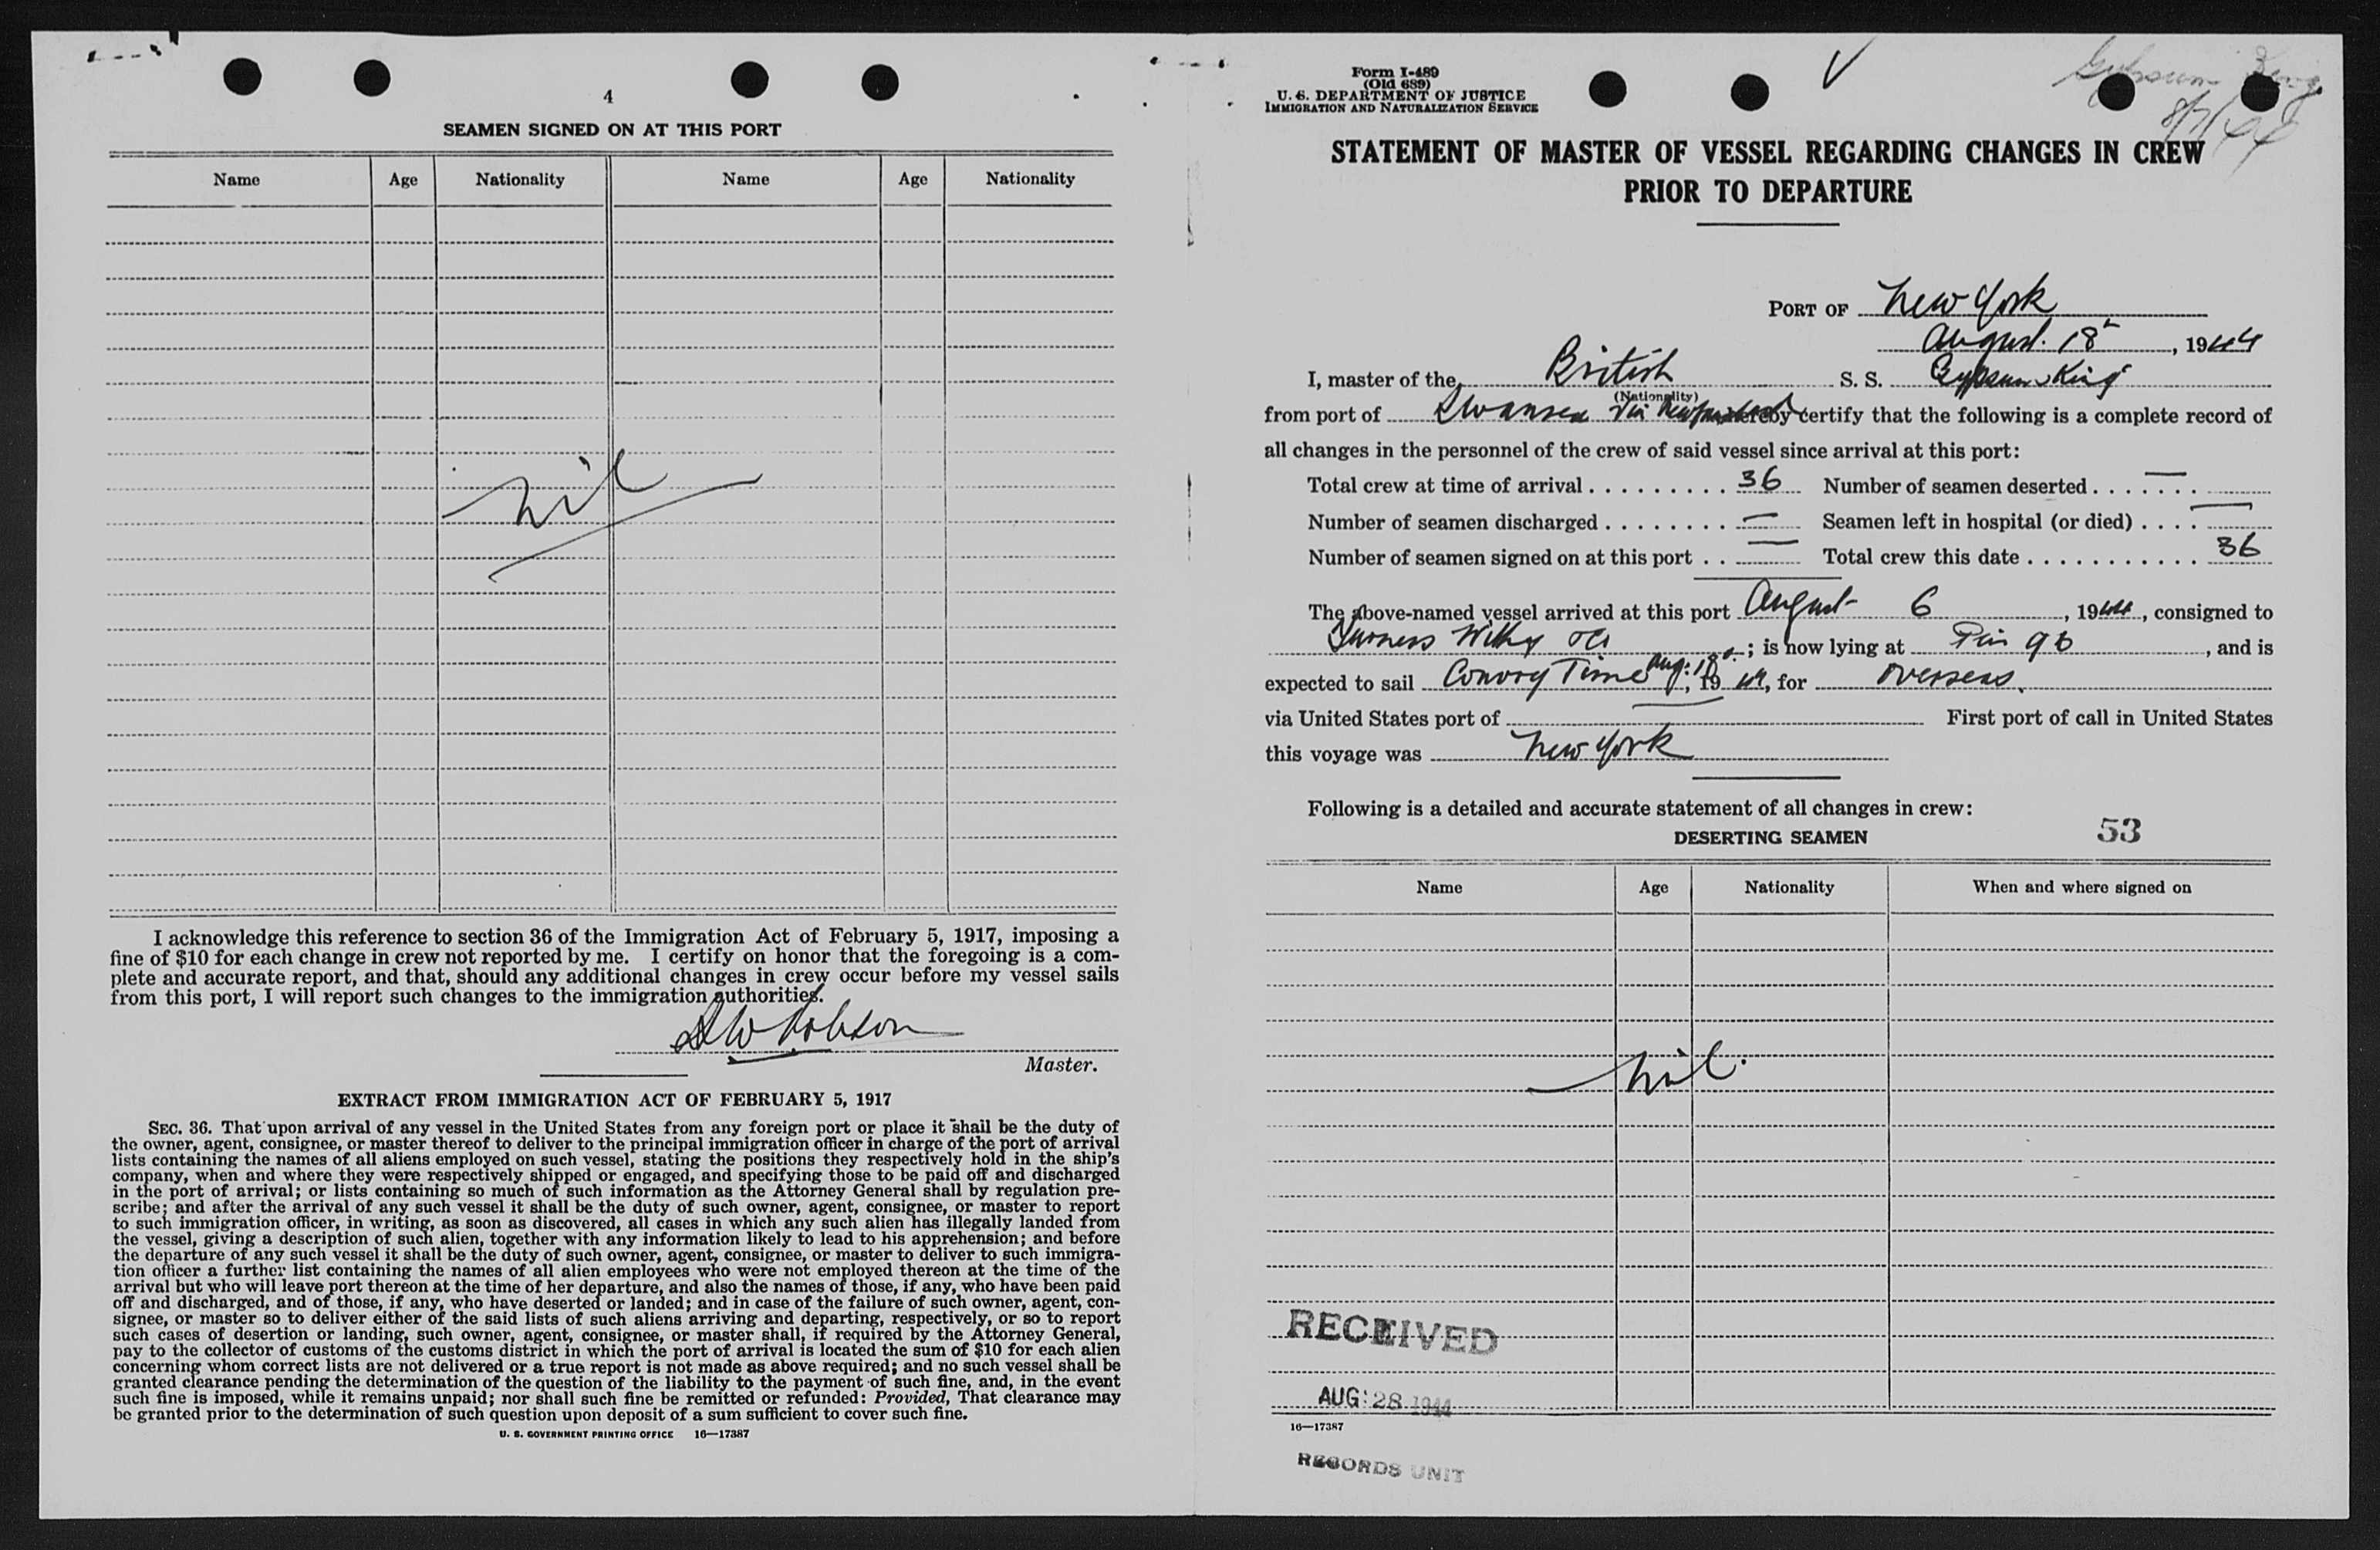 4
SEAMEN SIGNED ON AT THIS PORT
Name Age Nationality Name Age Nationality
nil
I acknowledge this reference to section 36 of the Immigration Act of February 5, 1917, imposing a
fine of $10 for each change in crew not reported by me. I certify on honor that the foregoing is a com-
plete and accurate report, and that, should any additional changes in crew occur before my vessel sails
from this port, I will report such changes to the immigration authorities.
Master.
EXTRACT FROM IMMIGRATION ACT OF FEBRUARY 5, 1917
SEC. 36. That upon arrival of any vessel in the United States from any foreign port or place it shall be the duty of
the owner, agent, consignee, or master thereof to deliver to the principal immigration officer in charge of the port of arrival
lists containing the names of all aliens employed on such vessel, stating the positions they respectively hold in the ship's
company, when and where they were respectively shipped or engaged, and specifying those to be paid off and discharged
in the port of arrival; or lists containing so much of such information as the Attorney General shall by regulation pre-
scribe; and after the arrival of any such vessel it shall be the duty of such owner, agent, consignee, or master to report
to such immigration officer, in writing, as soon as discovered, all cases in which any such alien has illegally landed from
the vessel, giving a description of such alien, together with any information likely to lead to his apprehension; and before
the departure of any such vessel it shall be the duty of such owner, agent, consignee, or master to deliver to such immigra-
tion officer a further list containing the names of all alien employees who were not employed thereon at the time of the
arrival but who will leave port thereon at the time of her departure, and also the names of those, if any, who have been paid
off and discharged, and of those, if any, who have deserted or landed; and in case of the failure of such owner, agent, con-
signee, or master so to deliver either of the said lists of such aliens arriving and departing, respectively, or so to report
such cases of desertion or landing, such owner, agent, consignee, or master shall, if required by the Attorney General,
pay to the collector of customs of the customs district in which the port of arrival is located the sum of $10 for each alien
concerning whom correct lists are not delivered or a true report is not made as above required; and no such vessel shall be
granted clearance pending the determination of the question of the liability to the payment of such fine, and, in the event
such fine is imposed, while it remains unpaid; nor shall such fine be remitted or refunded: Provided, That clearance may
be granted prior to the determination of such question upon deposit of a sum sufficient to cover such fine.
U. S. GOVERNMENT PRINTING OFFICE 16—17387
Form I-489
(Old 689)
U. S. DEPARTMENT OF JUSTICE
IMMIGRATION AND NATURALIZATION SERVICE
Gypsum King
8/7/44
STATEMENT OF MASTER OF VESSEL REGARDING CHANGES IN CREW
PRIOR TO DEPARTURE
PORT OF New York
August 18, 1944
I, master of the British S. S. Gypsum King
(Nationality)
from port of Swansea via hereby certify that the following is a complete record of
all changes in the personnel of the crew of said vessel since arrival at this port:
Total crew at time of arrival 36 Number of seamen deserted —
Number of seamen discharged — Seamen left in hospital (or died) —
Number of seamen signed on at this port — Total crew this date 36
The above-named vessel arrived at this port August 6, 1944, consigned to
Furness Withy ; is now lying at Pier 9b, and is
expected to sail Convoy Time Aug. 18, 1944, for overseas
via United States port of — First port of call in United States
this voyage was New York
Following is a detailed and accurate statement of all changes in crew:
DESERTING SEAMEN
53
Name Age Nationality When and where signed on
nil.
RECEIVED
AUG 28 1944
16—17387
RECORDS UNIT